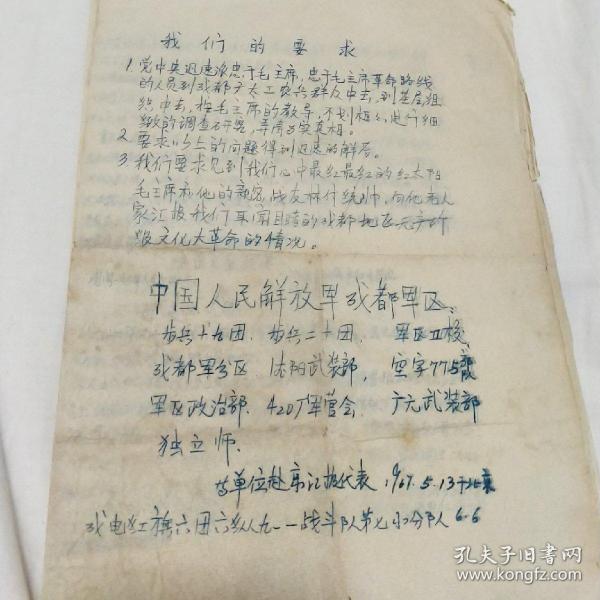 我们的要求
1. 党中央迅速派忠于毛主席,忠于毛主席革命路线
的人员到成都广大工农兵群众中去,到基层组
织中去,按毛主席的教导,不划框框,进行细
致的调查研究,弄清事实真相。
2. 要求以上的问题得到迅速的解答。
3. 我们要求见到我们心中最红最红的红太阳
毛主席和他的亲密战友林付统帅,向他老人
家汇报我们耳闻目睹的成都地区无产阶
级文化大革命的情况。
中国人民解放军成都军区:
步兵十九团. 步兵二十团. 军区卫校,
成都军分区. 沈阳武装部, 空字775部
军区政治部. 420厂军管会. 广元武装部
独立师.
等单位赴京汇报代表 1967.5.13于北京
成电红旗六团六纵八九一一战斗队第七小分队 6.6
孔夫子旧书网
www.kongfz.com